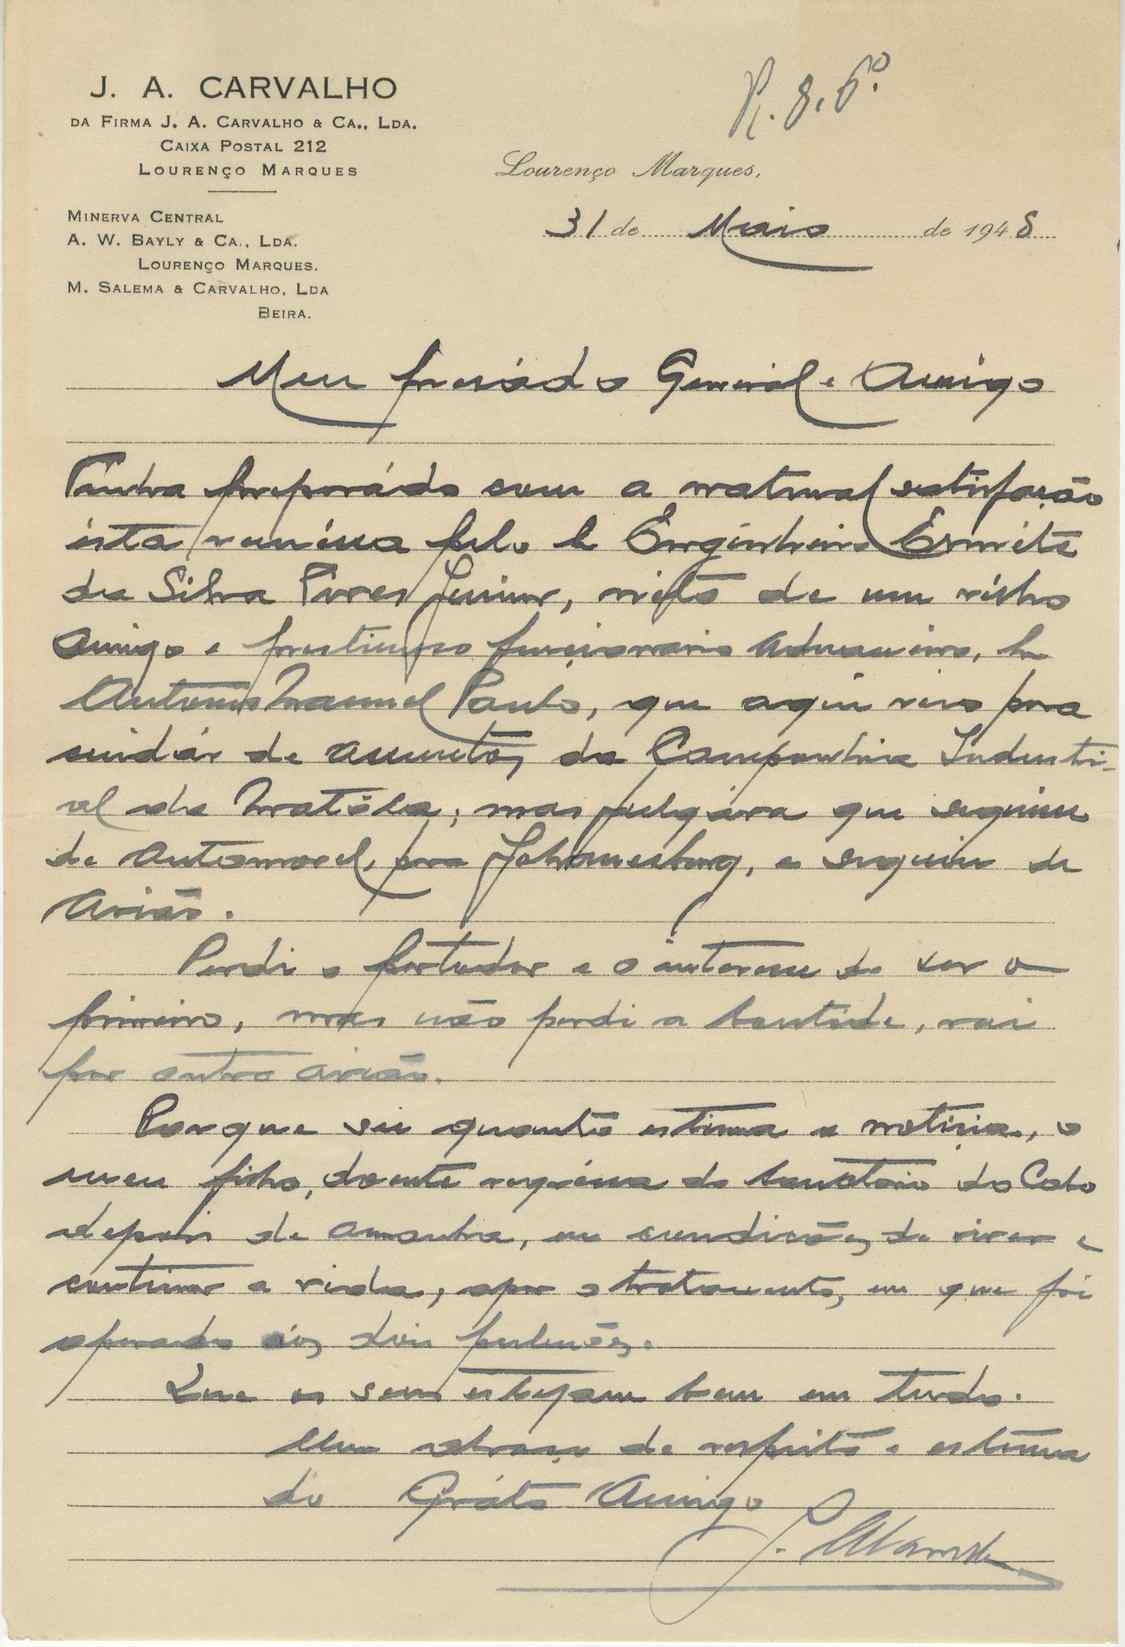 J. A. CARVALHO
DA FIRMA J. A. CARVALHO & CA., LDA.
CAIXA POSTAL 212
LOURENÇO MARQUES
MINERVA CENTRAL
A. W. BAYLY & CA., LDA.
LOURENÇO MARQUES.
M. SALEMA & CARVALHO, LDA
BEIRA.
Lourenço Marques,
31 de Maio de 1948
Meu General e Amigo
Tinha preparádo com a natural satisfação
ésta reméssa pelo Engenheiro
da Silva Pires Junior, néto de um vélho
Amigo e prestimoso funcionario Aduaneiro,
Antonio Manuel Paulo, que aqui veio para
cuidár de assuntos da Companhia Industri-
al da Matóla; mas julgára que seguiu
de Automovel para Johannesburg, e seguiu de
Avião.
Perdi o portador e o interesse de ser o
primeiro, mas não perdi a bontade, vai
por outro avião.
Porque sei quanto estima a noticia, o
meu filho, doente regréssa do Sanatorio do Cabo
depois de amanha, em condições de viver e
continuar a vida, apoz o tratamento, em que foi
operado aos dois pulmões.
Que os seus estejam bem em tudo.
Um abraço de respeito e estima
do Gráto Amigo
J. A. Carvalho